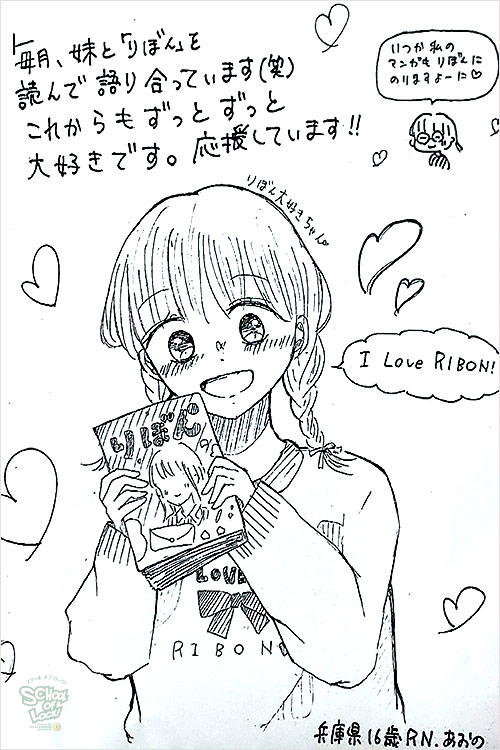 毎月、妹と「りぼん」を
読んで語り合っています(笑)
これからもずっとずっと
大好きです。応援しています!!
いつか私の
マンガもりぼんに
のりますよーに♡
りぼん大好きちゃん
I Love RIBON!
りぼん
LOVE
RIBON
スクール オブ ロック!
SCHOOL
OF
LOCK!
兵庫県16歳RN.あおの